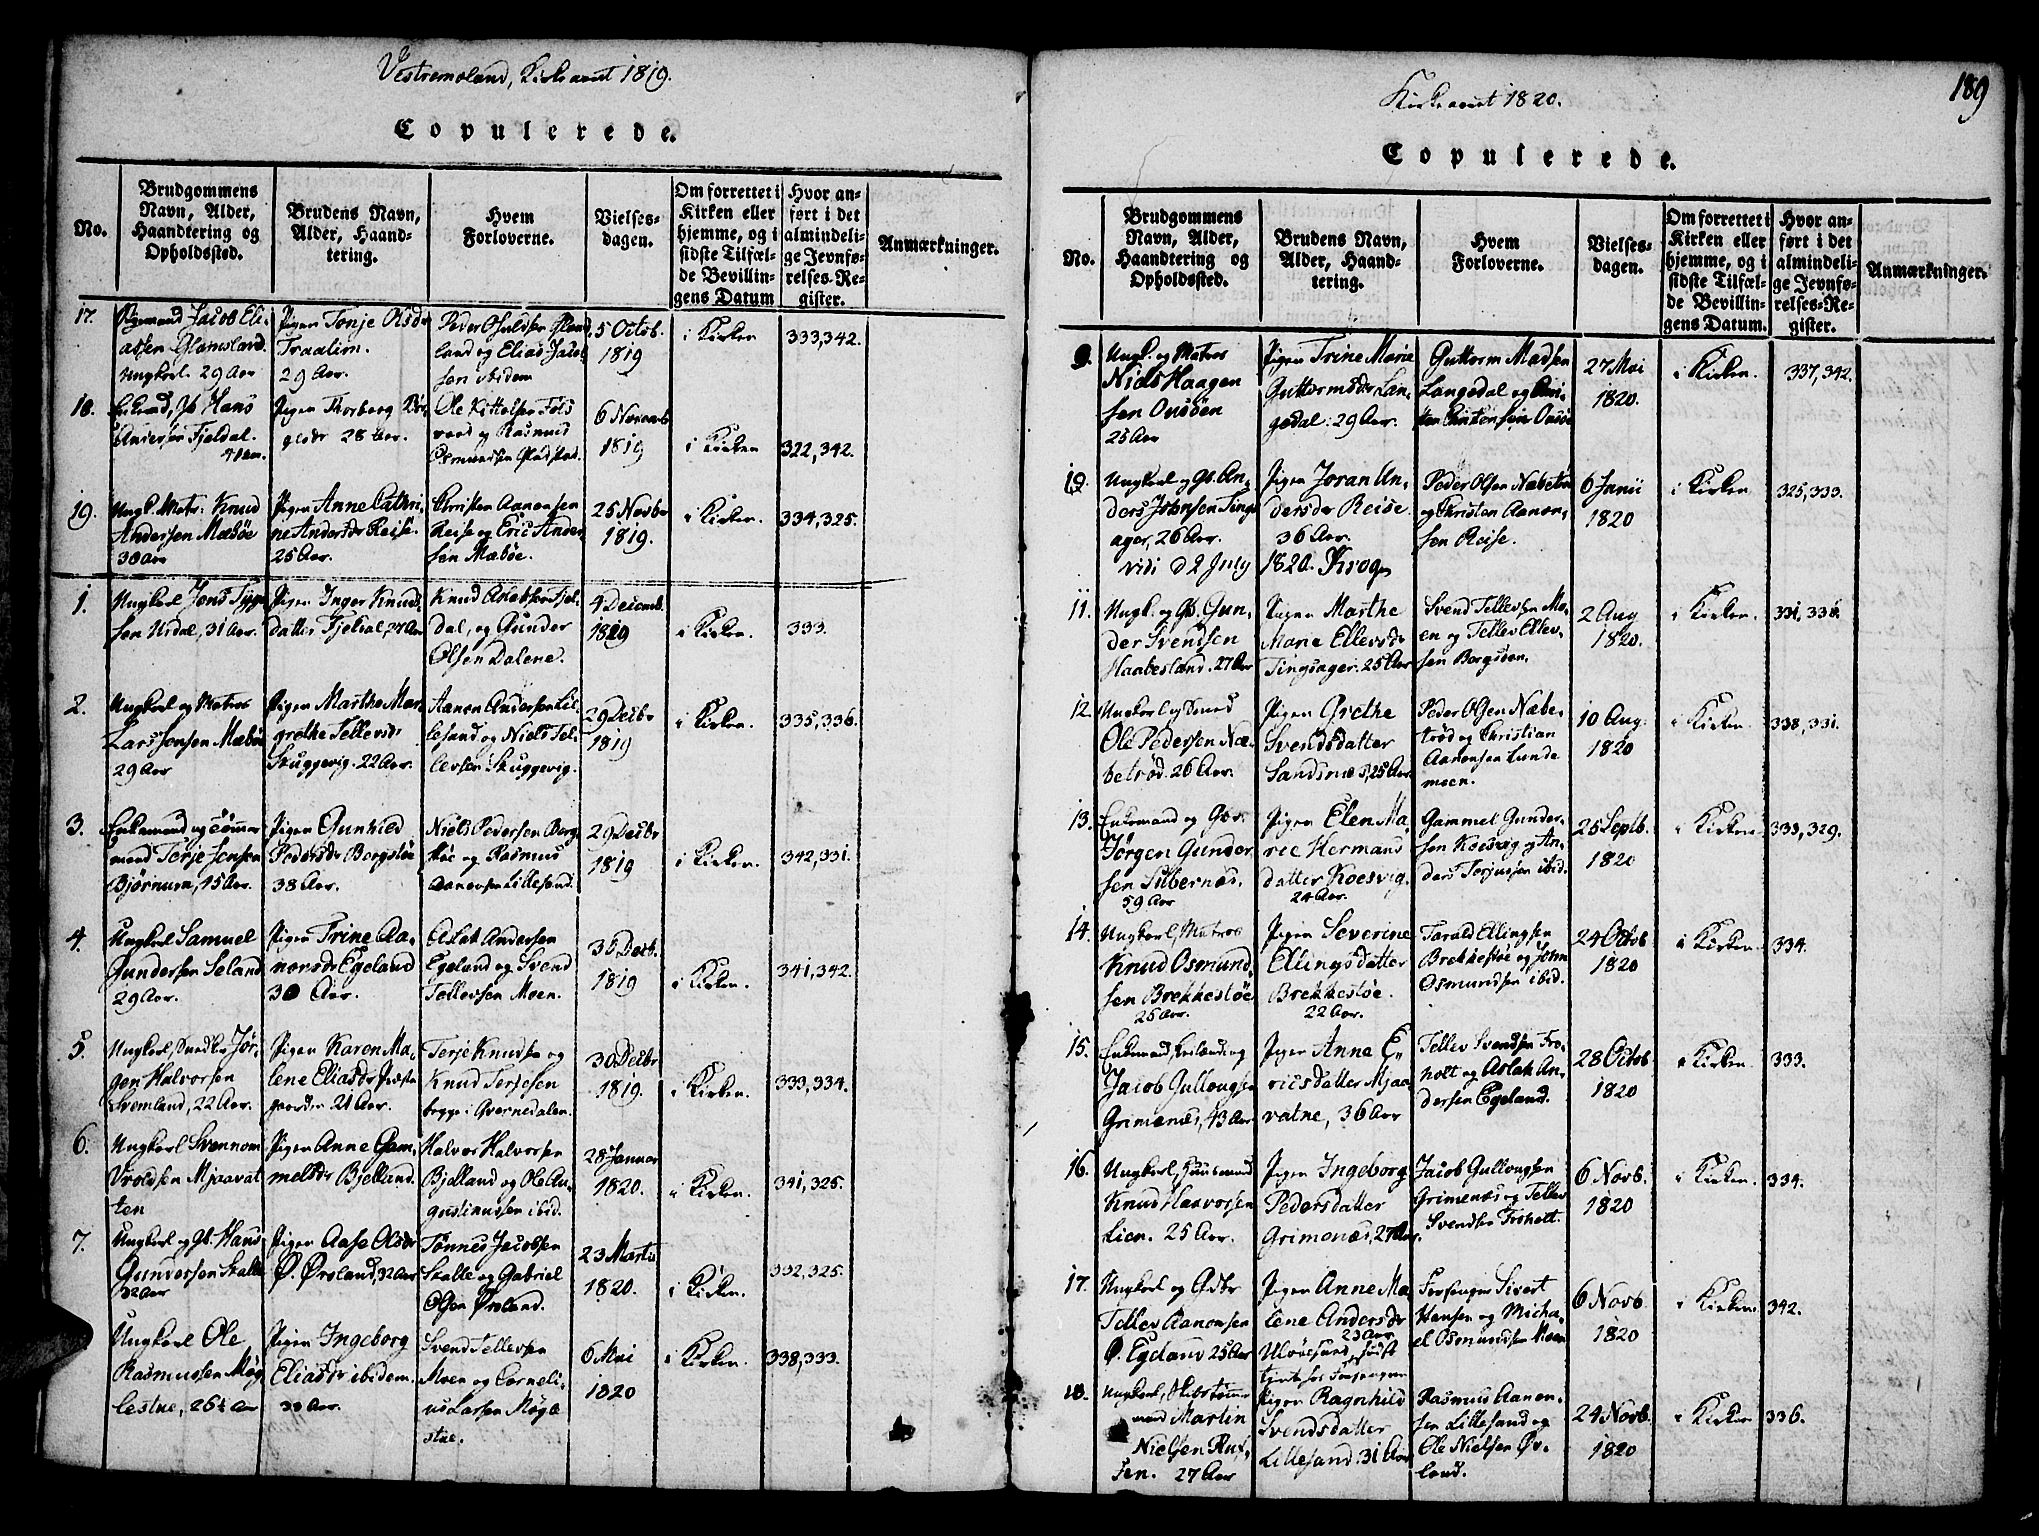 Vestremoland, Kirkeaaret 1819.
Copulerede.
No.
Brudgommens Navn, Alder, Haandtering og Opholdssted.
Brudens Navn, Alder, Haandtering.
Hvem Forloverne.
Vielsesdagen.
Om forrettet i Kirken eller hjemme, og i sidste Tilfælde Bevillingens Datum
Hvor anført i det almindelige Jevnførelses-Register.
Anmærkninger.
17.
Jacob Eliassen Glamsland. Ungkarl 29 Aar
Pigen Tonje Olsdr Traalim. 29 Aar.
Peder Osuldsen Glamsland og Elias Jacobsen ibidem
5 Octob. 1819
i Kirken
333, 342.
18.
Hans Andersen Fjeldal.
Pigen Thorborg 28 Aar.
Ole Kittelsen og Rasmus
6 Novemb 1819
i Kirken
322, 342.
19.
Ungk. Matr: Knud Andersen Mæbøe 30 Aar
Pigen Anne Cathrine Andersdr Reise. 25 Aar.
Christen Aanonsen Reise og Eric Andersen Mæbøe.
25 Novbr 1819.
i Kirken.
334, 325.
1.
Ungkarl Jens Urdal, 31 Aar.
Pigen Inger Knudsdatter Fjeldal, 27 Aar
Knud Fjeldal, og Gunder Olsen Dalene.
4 Decemb. 1819
i Kirken.
333.
2.
Ungkarl og Matros Lars Jonsen Mæbøe 29 Aar
Pigen Marthe Margrethe Tellevsdr Skuggevig. 22 Aar.
Aanon Andersen Lillesand og Niels Tellevsen Skuggevig.
29 Decbr 1819
i Kirken.
335, 336.
3.
Enkemand og Tømmermand Terje Jensen Bjørnum, 45 Aar.
Pigen Gunhild Pedersdr Borgstøe 38 Aar.
Niels Pedersen Borgstøe og Rasmus Aanonsen Lillesand.
29 Decbr 1819
i Kirken.
342, 331.
4.
Ungkarl Samuel Gundersen Seland 29 Aar.
Pigen Trine Aanonsdr Egeland 30 Aar.
Aslak Andersen Egeland og Svend Tellevsen Moen.
30 Decb. 1819
i Kirken.
341, 342.
5.
Ungkarl, Snedker Jørgen Halvorsen 22 Aar.
Pigen Karen Malene Eliasdr 21 Aar.
Terje Knudsen og Knud Terjesen begge i Qvernedalen.
30 Decbr 1819.
i Kirken.
333, 334.
6.
Ungkarl Svennom Vroldsen Mjaavatten
Pigen Anne Gammelsdr Bjelland.
Halvor Halvorsen Bjelland og Ole Augustinussen ibid.
28 Januar 1820.
i Kirken.
341, 325.
7.
Ungkarl og Gb. Hans Gundersen Skalle 32 Aar
Pigen Aase Olsdr Ø. Ørsland, 32 Aar
Tønnes Jacobsen Skalle og Gabriel Olsen Ørsland.
23 Martii 1820.
i Kirken.
332, 325.
Ungkarl Ole Rasmussen Møglestue, 26½ Aar
Pigen Ingeborg Eliasdr ibidem. 30 Aar.
Svend Tellevsen Moen og Cornelius Larsen Møglestue.
6 Mai 1820
i Kirken.
338, 333.
Kirkeaaret 1820.
189
Copulerede.
No.
Brudgommens Navn, Alder, Haandtering og Opholdssted.
Brudens Navn, Alder, Haandtering.
Hvem Forloverne.
Vielsesdagen.
Om forrettet i Kirken eller hjemme, og i sidste Tilfælde Bevillingens Datum.
Hvor anført i det almindelige Jevnførelses-Register.
Anmærkninger.
9.
Ungk. og Matros Niels Haagensen Ousøen 25 Aar
Pigen Trine Marie Guttormsdr Langedal: 29 Aar.
Guttorm Madsen Langedal og Ousøe
27 Mai 1820.
i Kirken.
337, 342.
10.
Ungkarl og Gb. Anders Johnsen Tingsager, 26 Aar.
Pigen Joran Andersdr Reise 36 Aar.
Peder Olsen Næbetrød og Christen Aanonsen Reise.
6 Junii 1820
i Kirken
325, 333.
vidi d 2 July 1820. Krog
11.
Ungk. og Gb. Gunder Svendsen Haabesland. 27 Aar
Pigen Marthe Marie Ellevsdr Tingsager. 25 Aar
Svend Tellevsen Moen og Tellev Ellevsen Borgsøen.
2 Aug 1820.
i Kirken.
331, 336.
12.
Ungkarl og Smed Ole Pedersen Næbetrød. 26 Aar.
Pigen Grethe Svendsdatter Sandsnæs, 25 Aar.
Peder Olsen Næbetrød og Christian Aanonsen Lundemoen.
10 Aug. 1820
i Kirken.
338, 331.
13.
Enkemand og Gbr. Jørgen Gundersen Silbernæs. 59 Aar
Pigen Elen Marie Hermandsdatter Koesvig. 24 Aar.
Gammel Gundersen Koesvig og Anders Terjusen ibid.
25 Septb. 1820
i Kirken
333, 329.
14.
Ungkarl, Matros Knud Osmundsen Brekkestøe 26 Aar.
Pigen Severine Ellingsdatter Brekkestøe. 22 Aar.
Tarald Ellingsen Brekkestøe og John Osmundsen ibid.
24 Octob 1820
i Kirken.
334.
15.
Enkemand, og Jacob Gullougsen Grimenæs, 43 Aar
Pigen Anne Ericsdatter Mjaavatne, 36 Aar
Tellev Svendsen Froholt og Aslak Andersen Egeland.
28 Octob 1820
i Kirken.
333.
16.
Ungkarl, Huusmand Knud Halvorsen Lien. 25 Aar.
Pigen Ingeborg Pedersdatter Grimenæs, 27 Aar.
Jacob Gullougsen Grimenæs og Tellev Svendsen Froholt.
6 Novb. 1820
i Kirken.
334.
17.
Ungkarl og Gdbr Tellev Aanonsen Ø. Egeland 25 Aar
Pigen Anne Malene Andersdr 23 Aar Ulvøesund,
Forsanger Sivert Hansen og Michael Osmundsen Moen
6 Novb 1820
i Kirken.
342.
18.
Ungkarl, Skibstømmermand Martin Nielsen 27 Aar
Pigen Ragnhild Svendsdatter Lillesand. 31 Aar
Rasmus Aanonsen Lillesand og Ole Nielsen
24 Novb. 1820
i Kirken
336.